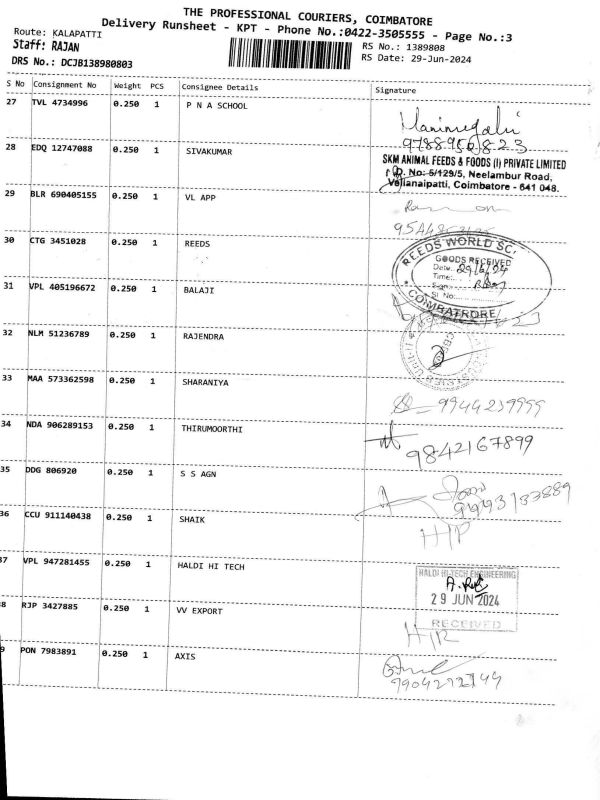 THE PROFESSIONAL COURIERS, COIMBATORE
Delivery Runsheet - KPT - Phone No.:0422-3505555 - Page No.:3
Route: KALAPATTI
Staff: RAJAN
RS No.: 1389808
DRS No.: DCJB138980803
RS Date: 29-Jun-2024
S No Consignment No Weight PCS Consignee Details Signature
27 TVL 4734996 0.250 1 P N A SCHOOL
9788956823
28 EDQ 12747088 0.250 1 SIVAKUMAR
SKM ANIMAL FEEDS & FOODS (I) PRIVATE LIMITED
No: 5/129/5, Neelambur Road,
Vellanaipatti, Coimbatore - 641 048.
29 BLR 690405155 0.250 1 VL APP
30 CTG 3451028 0.250 1 REEDS
REEDS WORLD SC.
GOODS RECEIVED
Date: 29/6/24
Time:
Sign:
Sl No:
COIMBATRORE
31 VPL 405196672 0.250 1 BALAJI
32 NLM 51236789 0.250 1 RAJENDRA
33 MAA 573362598 0.250 1 SHARANIYA
9944239999
34 NDA 906289153 0.250 1 THIRUMOORTHI
9842167899
35 DDG 806920 0.250 1 S S AGN
36 CCU 911140438 0.250 1 SHAIK
37 VPL 947281455 0.250 1 HALDI HI TECH
HALDI HI-TECH ENGINEERING
29 JUN 2024
RECEIVED
8 RJP 3427885 0.250 1 VV EXPORT
9 PON 7983891 0.250 1 AXIS